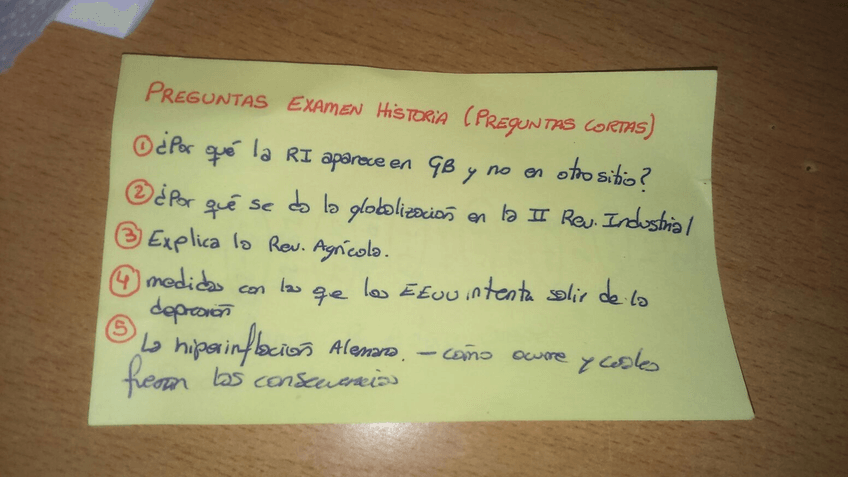 PREGUNTAS EXAMEN HISTORIA (PREGUNTAS CORTAS)
① ¿Por qué la RI aparece en GB y no en otro sitio?
② ¿Por qué se da la globalización en la II Rev. Industrial
③ Explica la Rev. Agrícola.
④ medidas con las que los EEUU intenta salir de la
depresión
⑤ La hiperinflación Alemana. – cómo ocurre y cuales
fueron las consecuencias